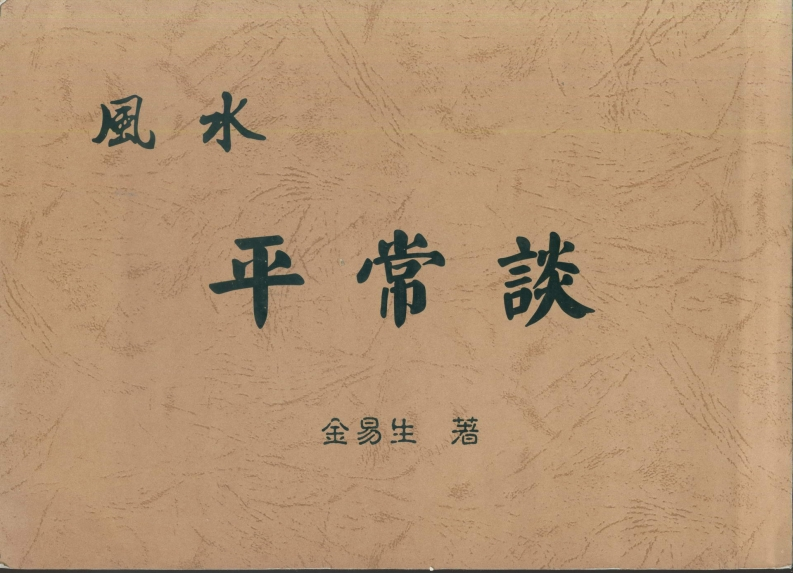 風水
平常談
金易生 著